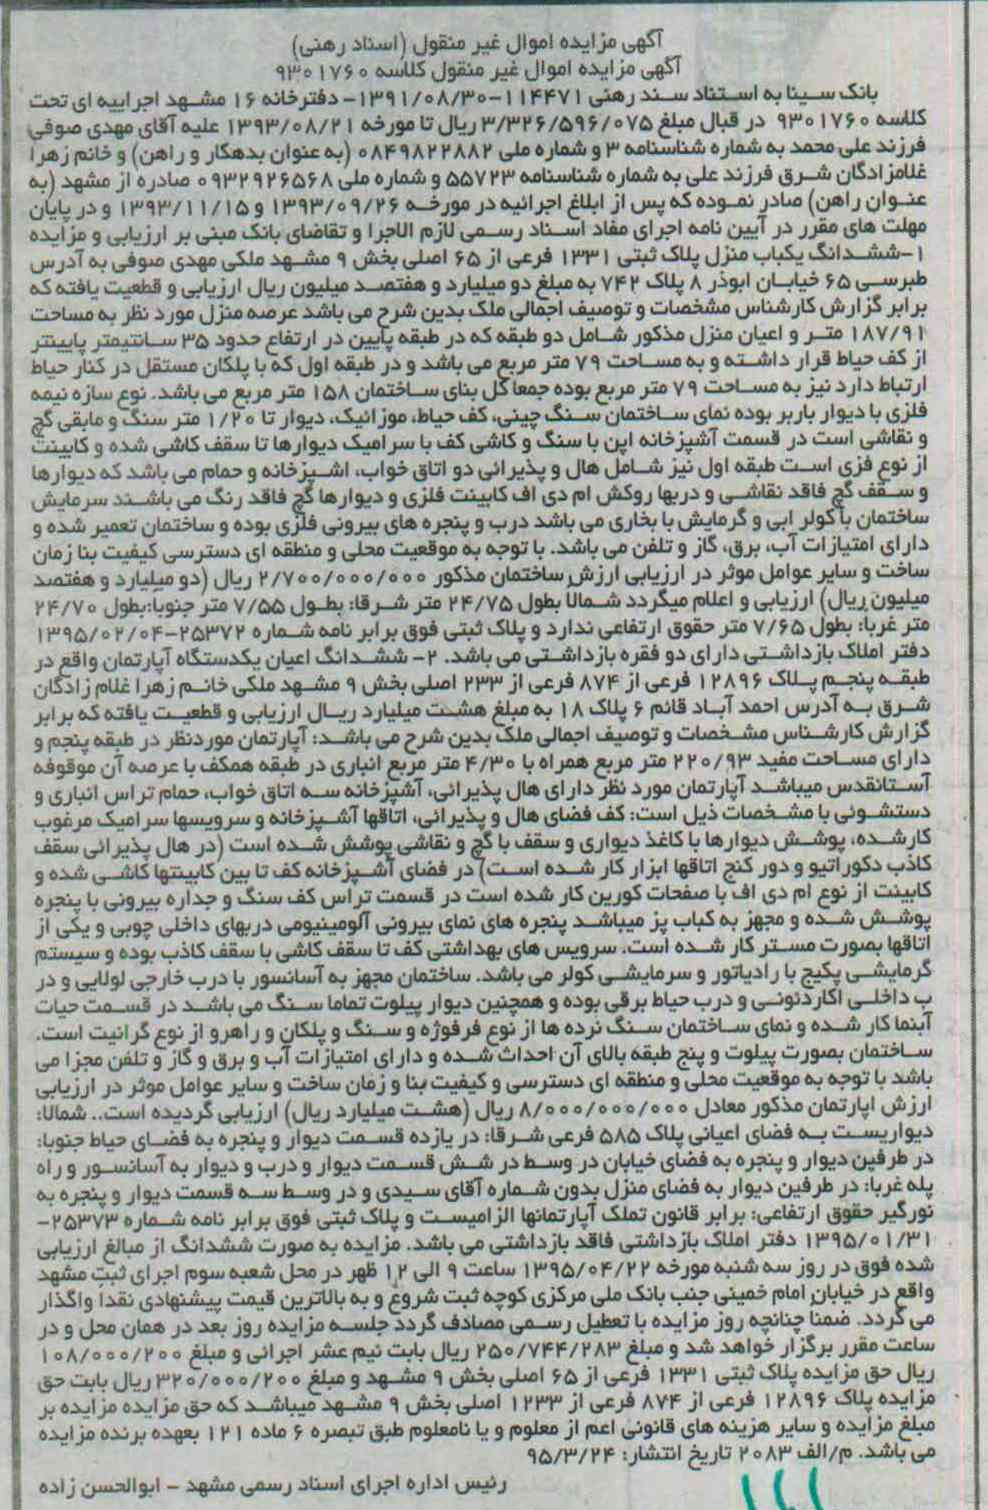 آگهی مزایده اموال غیر منقول (اسناد رهنی)
آگهی مزایده اموال غیر منقول کلاسه ۹۳۰۱۷۶۰
بانک سینا به استناد سند رهنی ۱۱۴۴۷۱-۱۳۹۱/۰۸/۳۰- دفترخانه ۱۶ مشهد اجراییه ای تحت
کلاسه ۹۳۰۱۷۶۰ در قبال مبلغ ۳/۳۲۶/۵۹۶/۰۷۵ ریال تا مورخه ۱۳۹۳/۰۸/۲۱ علیه آقای مهدی صوفی
فرزند علی محمد به شماره شناسنامه ۳ و شماره ملی ۰۸۴۹۸۲۲۸۸۲ (به عنوان بدهکار و راهن) و خانم زهرا
غلامزادگان شرق فرزند علی به شماره شناسنامه ۵۵۷۲۳ و شماره ملی ۰۹۳۲۹۲۶۵۶۸ صادره از مشهد (به
عنوان راهن) صادر نموده که پس از ابلاغ اجرائیه در مورخه ۱۳۹۳/۰۹/۲۶ و ۱۳۹۳/۱۱/۱۵ و در پایان
مهلت های مقرر در آیین نامه اجرای مفاد اسناد رسمی لازم الاجرا و تقاضای بانک مبنی بر ارزیابی و مزایده
۱-ششدانگ یکباب منزل پلاک ثبتی ۱۳۳۱ فرعی از ۶۵ اصلی بخش ۹ مشهد ملکی مهدی صوفی به آدرس
طبرسی ۶۵ خیابان ابوذر ۸ پلاک ۷۴۲ به مبلغ دو میلیارد و هفتصد میلیون ریال ارزیابی و قطعیت یافته که
برابر گزارش کارشناس مشخصات و توصیف اجمالی ملک بدین شرح می باشد عرصه منزل مورد نظر به مساحت
۱۸۷/۹۱ متر و اعیان منزل مذکور شامل دو طبقه که در طبقه پایین در ارتفاع حدود ۳۵ سانتیمتر پایینتر
از کف حیاط قرار داشته و به مساحت ۷۹ متر مربع می باشد و در طبقه اول که با پلکان مستقل در کنار حیاط
ارتباط دارد نیز به مساحت ۷۹ متر مربع بوده جمعا کل بنای ساختمان ۱۵۸ متر مربع می باشد. نوع سازه نیمه
فلزی با دیوار باربر بوده نمای ساختمان سنگ چینی، کف حیاط، موزائیک، دیوار تا ۱/۲۰ متر سنگ و مابقی گچ
و نقاشی است در قسمت آشپزخانه اپن با سنگ و کاشی کف با سرامیک دیوارها تا سقف کاشی شده و کابینت
از نوع فزی است طبقه اول نیز شامل هال و پذیرائی دو اتاق خواب، اشپزخانه و حمام می باشد که دیوارها
و سقف گچ فاقد نقاشی و دربها روکش ام دی اف کابینت فلزی و دیوارها گچ فاقد رنگ می باشند سرمایش
ساختمان با کولر ابی و گرمایش با بخاری می باشد درب و پنجره های بیرونی فلزی بوده و ساختمان تعمیر شده و
دارای امتیازات آب، برق، گاز و تلفن می باشد. با توجه به موقعیت محلی و منطقه ای دسترسی کیفیت بنا زمان
ساخت و سایر عوامل موثر در ارزیابی ارزش ساختمان مذکور ۲/۷۰۰/۰۰۰/۰۰۰ ریال (دو میلیارد و هفتصد
میلیون ریال) ارزیابی و اعلام میگردد شمالا بطول ۲۴/۷۵ متر شرقا: بطول ۷/۵۵ متر جنوبا:بطول ۲۴/۷۰
متر غربا: بطول ۷/۶۵ متر حقوق ارتفاعی ندارد و پلاک ثبتی فوق برابر نامه شماره ۲۵۳۷۲-۱۳۹۵/۰۲/۰۴
دفتر املاک بازداشتی دارای دو فقره بازداشتی می باشد. ۲- ششدانگ اعیان یکدستگاه آپارتمان واقع در
طبقه پنجم پلاک ۱۲۸۹۶ فرعی از ۸۷۴ فرعی از ۲۳۳ اصلی بخش ۹ مشهد ملکی خانم زهرا غلام زادگان
شرق به آدرس احمد آباد قائم ۶ پلاک ۱۸ به مبلغ هشت میلیارد ریال ارزیابی و قطعیت یافته که برابر
گزارش کارشناس مشخصات و توصیف اجمالی ملک بدین شرح می باشد: آپارتمان موردنظر در طبقه پنجم و
دارای مساحت مفید ۲۲۰/۹۳ متر مربع همراه با ۴/۳۰ متر مربع انباری در طبقه همکف با عرصه آن موقوفه
آستانقدس میباشد آپارتمان مورد نظر دارای هال پذیرائی، آشپزخانه سه اتاق خواب، حمام تراس انباری و
دستشوئی با مشخصات ذیل است: کف فضای هال و پذیرائی، اتاقها آشپزخانه و سرویسها سرامیک مرغوب
کار شده، پوشش دیوارها با کاغذ دیواری و سقف با گچ و نقاشی پوشش شده است (در هال پذیرائی سقف
کاذب دکوراتیو و دور کنج اتاقها ابزار کار شده است) در فضای آشپزخانه کف تا بین کابینتها کاشی شده و
کابینت از نوع ام دی اف با صفحات کورین کار شده است در قسمت تراس کف سنگ و جداره بیرونی با پنجره
پوشش شده و مجهز به کباب پز میباشد پنجره های نمای بیرونی آلومینیومی دربهای داخلی چوبی و یکی از
اتاقها بصورت مستر کار شده است. سرویس های بهداشتی کف تا سقف کاشی با سقف کاذب بوده و سیستم
گرمایشی پکیج با رادیاتور و سرمایشی کولر می باشد. ساختمان مجهز به آسانسور با درب خارجی لولایی و در
ب داخلی اکاردئونی و درب حیاط برقی بوده و همچنین دیوار پیلوت تماما سنگ می باشد در قسمت حیات
آبنما کار شده و نمای ساختمان سنگ نرده ها از نوع فرفوژه و سنگ و پلکان و راهرو از نوع گرانیت است.
ساختمان بصورت پیلوت و پنج طبقه بالای آن احداث شده و دارای امتیازات آب و برق و گاز و تلفن مجزا می
باشد با توجه به موقعیت محلی و منطقه ای دسترسی و کیفیت بنا و زمان ساخت و سایر عوامل موثر در ارزیابی
ارزش اپارتمان مذکور معادل ۸/۰۰۰/۰۰۰/۰۰۰ ریال (هشت میلیارد ریال) ارزیابی گردیده است.. شمالا:
دیواریست به فضای اعیانی پلاک ۵۸۵ فرعی شرقا: در یازده قسمت دیوار و پنجره به فضای حیاط جنوبا:
در طرفین دیوار و پنجره به فضای خیابان در وسط در شش قسمت دیوار و درب و دیوار به آسانسور و راه
پله غربا: در طرفین دیوار به فضای منزل بدون شماره آقای سیدی و در وسط سه قسمت دیوار و پنجره به
نورگیر حقوق ارتفاعی: برابر قانون تملک آپارتمانها الزامیست و پلاک ثبتی فوق برابر نامه شماره ۲۵۳۷۳-
۱۳۹۵/۰۱/۳۱ دفتر املاک بازداشتی فاقد بازداشتی می باشد. مزایده به صورت ششدانگ از مبالغ ارزیابی
شده فوق در روز سه شنبه مورخه ۱۳۹۵/۰۴/۲۲ ساعت ۹ الی ۱۲ ظهر در محل شعبه سوم اجرای ثبت مشهد
واقع در خیابان امام خمینی جنب بانک ملی مرکزی کوچه ثبت شروع و به بالاترین قیمت پیشنهادی نقدا واگذار
می گردد. ضمنا چنانچه روز مزایده با تعطیل رسمی مصادف گردد جلسه مزایده روز بعد در همان محل و در
ساعت مقرر برگزار خواهد شد و مبلغ ۲۵۰/۷۴۴/۲۸۳ ریال بابت نیم عشر اجرائی و مبلغ ۱۰۸/۰۰۰/۲۰۰
ریال حق مزایده پلاک ثبتی ۱۳۳۱ فرعی از ۶۵ اصلی بخش ۹ مشهد و مبلغ ۳۲۰/۰۰۰/۲۰۰ ریال بابت حق
مزایده پلاک ۱۲۸۹۶ فرعی از ۸۷۴ فرعی از ۱۲۳۳ اصلی بخش ۹ مشهد میباشد که حق مزایده مزایده بر
مبلغ مزایده و سایر هزینه های قانونی اعم از معلوم و یا نامعلوم طبق تبصره ۶ ماده ۱۲۱ بعهده برنده مزایده
می باشد. م/الف ۲۰۸۳ تاریخ انتشار: ۹۵/۳/۲۴
رئیس اداره اجرای اسناد رسمی مشهد - ابوالحسن زاده